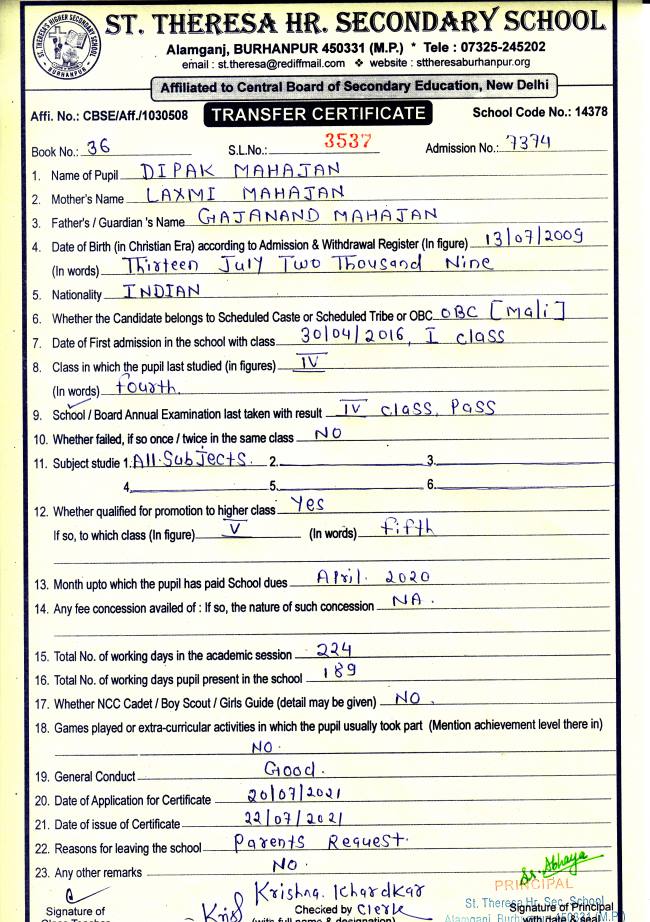 ST. THERESA HR. SECONDARY SCHOOL
Alamganj, BURHANPUR 450331 (M.P.) * Tele : 07325-245202
email : st.theresa@rediffmail.com ❖ website : sttheresaburhanpur.org
Affiliated to Central Board of Secondary Education, New Delhi
Affi. No.: CBSE/Aff./1030508 TRANSFER CERTIFICATE School Code No.: 14378
Book No.: 36 S.L.No.: 3537 Admission No.: 7374
1. Name of Pupil DIPAK MAHAJAN
2. Mother's Name LAXMI MAHAJAN
3. Father's / Guardian 's Name GAJANAND MAHAJAN
4. Date of Birth (in Christian Era) according to Admission & Withdrawal Register (In figure) 13/07/2009
(In words) Thirteen July Two Thousand Nine
5. Nationality INDIAN
6. Whether the Candidate belongs to Scheduled Caste or Scheduled Tribe or OBC OBC [Mali]
7. Date of First admission in the school with class 30/04/2016, I class
8. Class in which the pupil last studied (in figures) IV
(In words) fourth.
9. School / Board Annual Examination last taken with result IV class, Pass
10. Whether failed, if so once / twice in the same class NO
11. Subject studie 1. All Subjects. 2. 3.
4. 5. 6.
12. Whether qualified for promotion to higher class Yes
If so, to which class (In figure) V (In words) fifth
13. Month upto which the pupil has paid School dues April. 2020
14. Any fee concession availed of : If so, the nature of such concession NA.
15. Total No. of working days in the academic session 224
16. Total No. of working days pupil present in the school 189
17. Whether NCC Cadet / Boy Scout / Girls Guide (detail may be given) NO.
18. Games played or extra-curricular activities in which the pupil usually took part (Mention achievement level there in)
NO.
19. General Conduct Good.
20. Date of Application for Certificate 20/07/2021
21. Date of issue of Certificate 22/07/2021
22. Reasons for leaving the school Parents Request.
23. Any other remarks NO.
Sr. Abhaya
PRINCIPAL
Krishna Khardkar
St. Theresa Hr. Sec. School
Signature of Checked by Clerk Signature of Principal
(with full name & designation) Alamganj, Burhanpur 450331 (M.P.) with date & seal